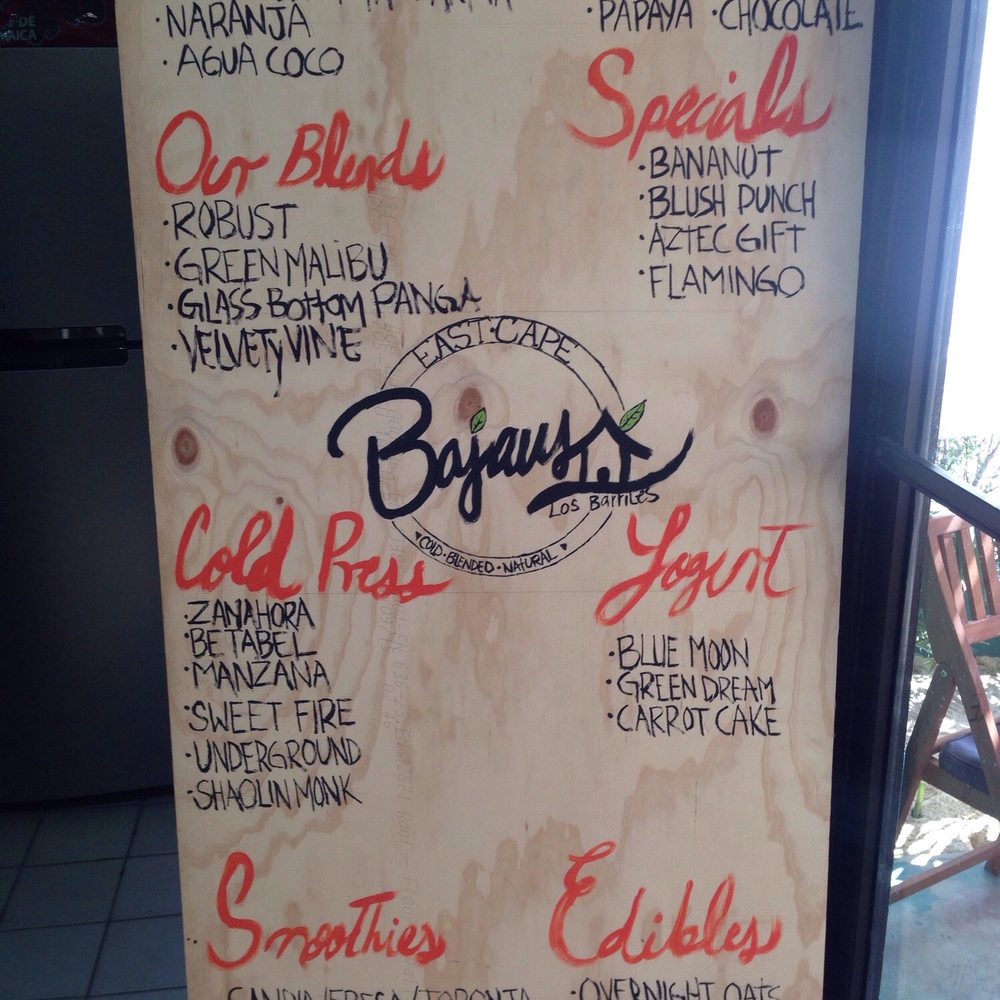 NARANJA
· AGUA COCO
·PAPAYA ·CHOCOLATE
Specials
·BANANUT
·BLUSH PUNCH
·AZTEC GIFT
·FLAMINGO
Our Blends
·ROBUST
·GREEN MALIBU
·GLASS BOttOM PANGA
·VELVETy VINE
EAST·CAPE
Bajaus
Los BarriLes
COLD·BLENDED·NATURAL
Cold Press
·ZANAHORA
·BETABEL
·MANZANA
·SWEET FIRE
·UNDERGROUND
·SHAOLIN MONK
Yogurt
·BLUE MOON
·GREEN DREAM
·CARROT CAKE
Smoothies
Edibles
·OVERNIGHT OATS